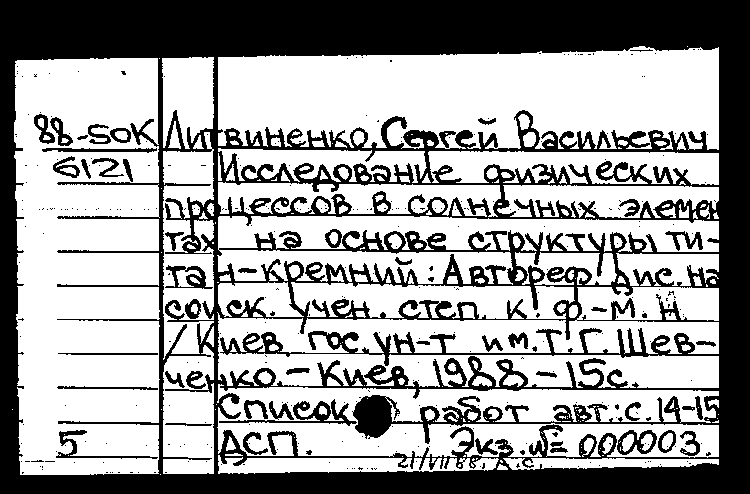 88-SOK Литвиненко, Сергей Васильевич
6121 Исследование физических
процессов в солнечных элемен
тах на основе структуры ти-
тан-кремний: Автореф. дис. на
соиск. учен. степ. к. ф.-м. н.
/ Киев. гос. ун-т им. Т. Г. Шев-
ченко. - Киев, 1988. - 15с.
Список работ авт.: с. 14-15
5 ДСП. Экз. № 000003.
21/VII 88. А.С.